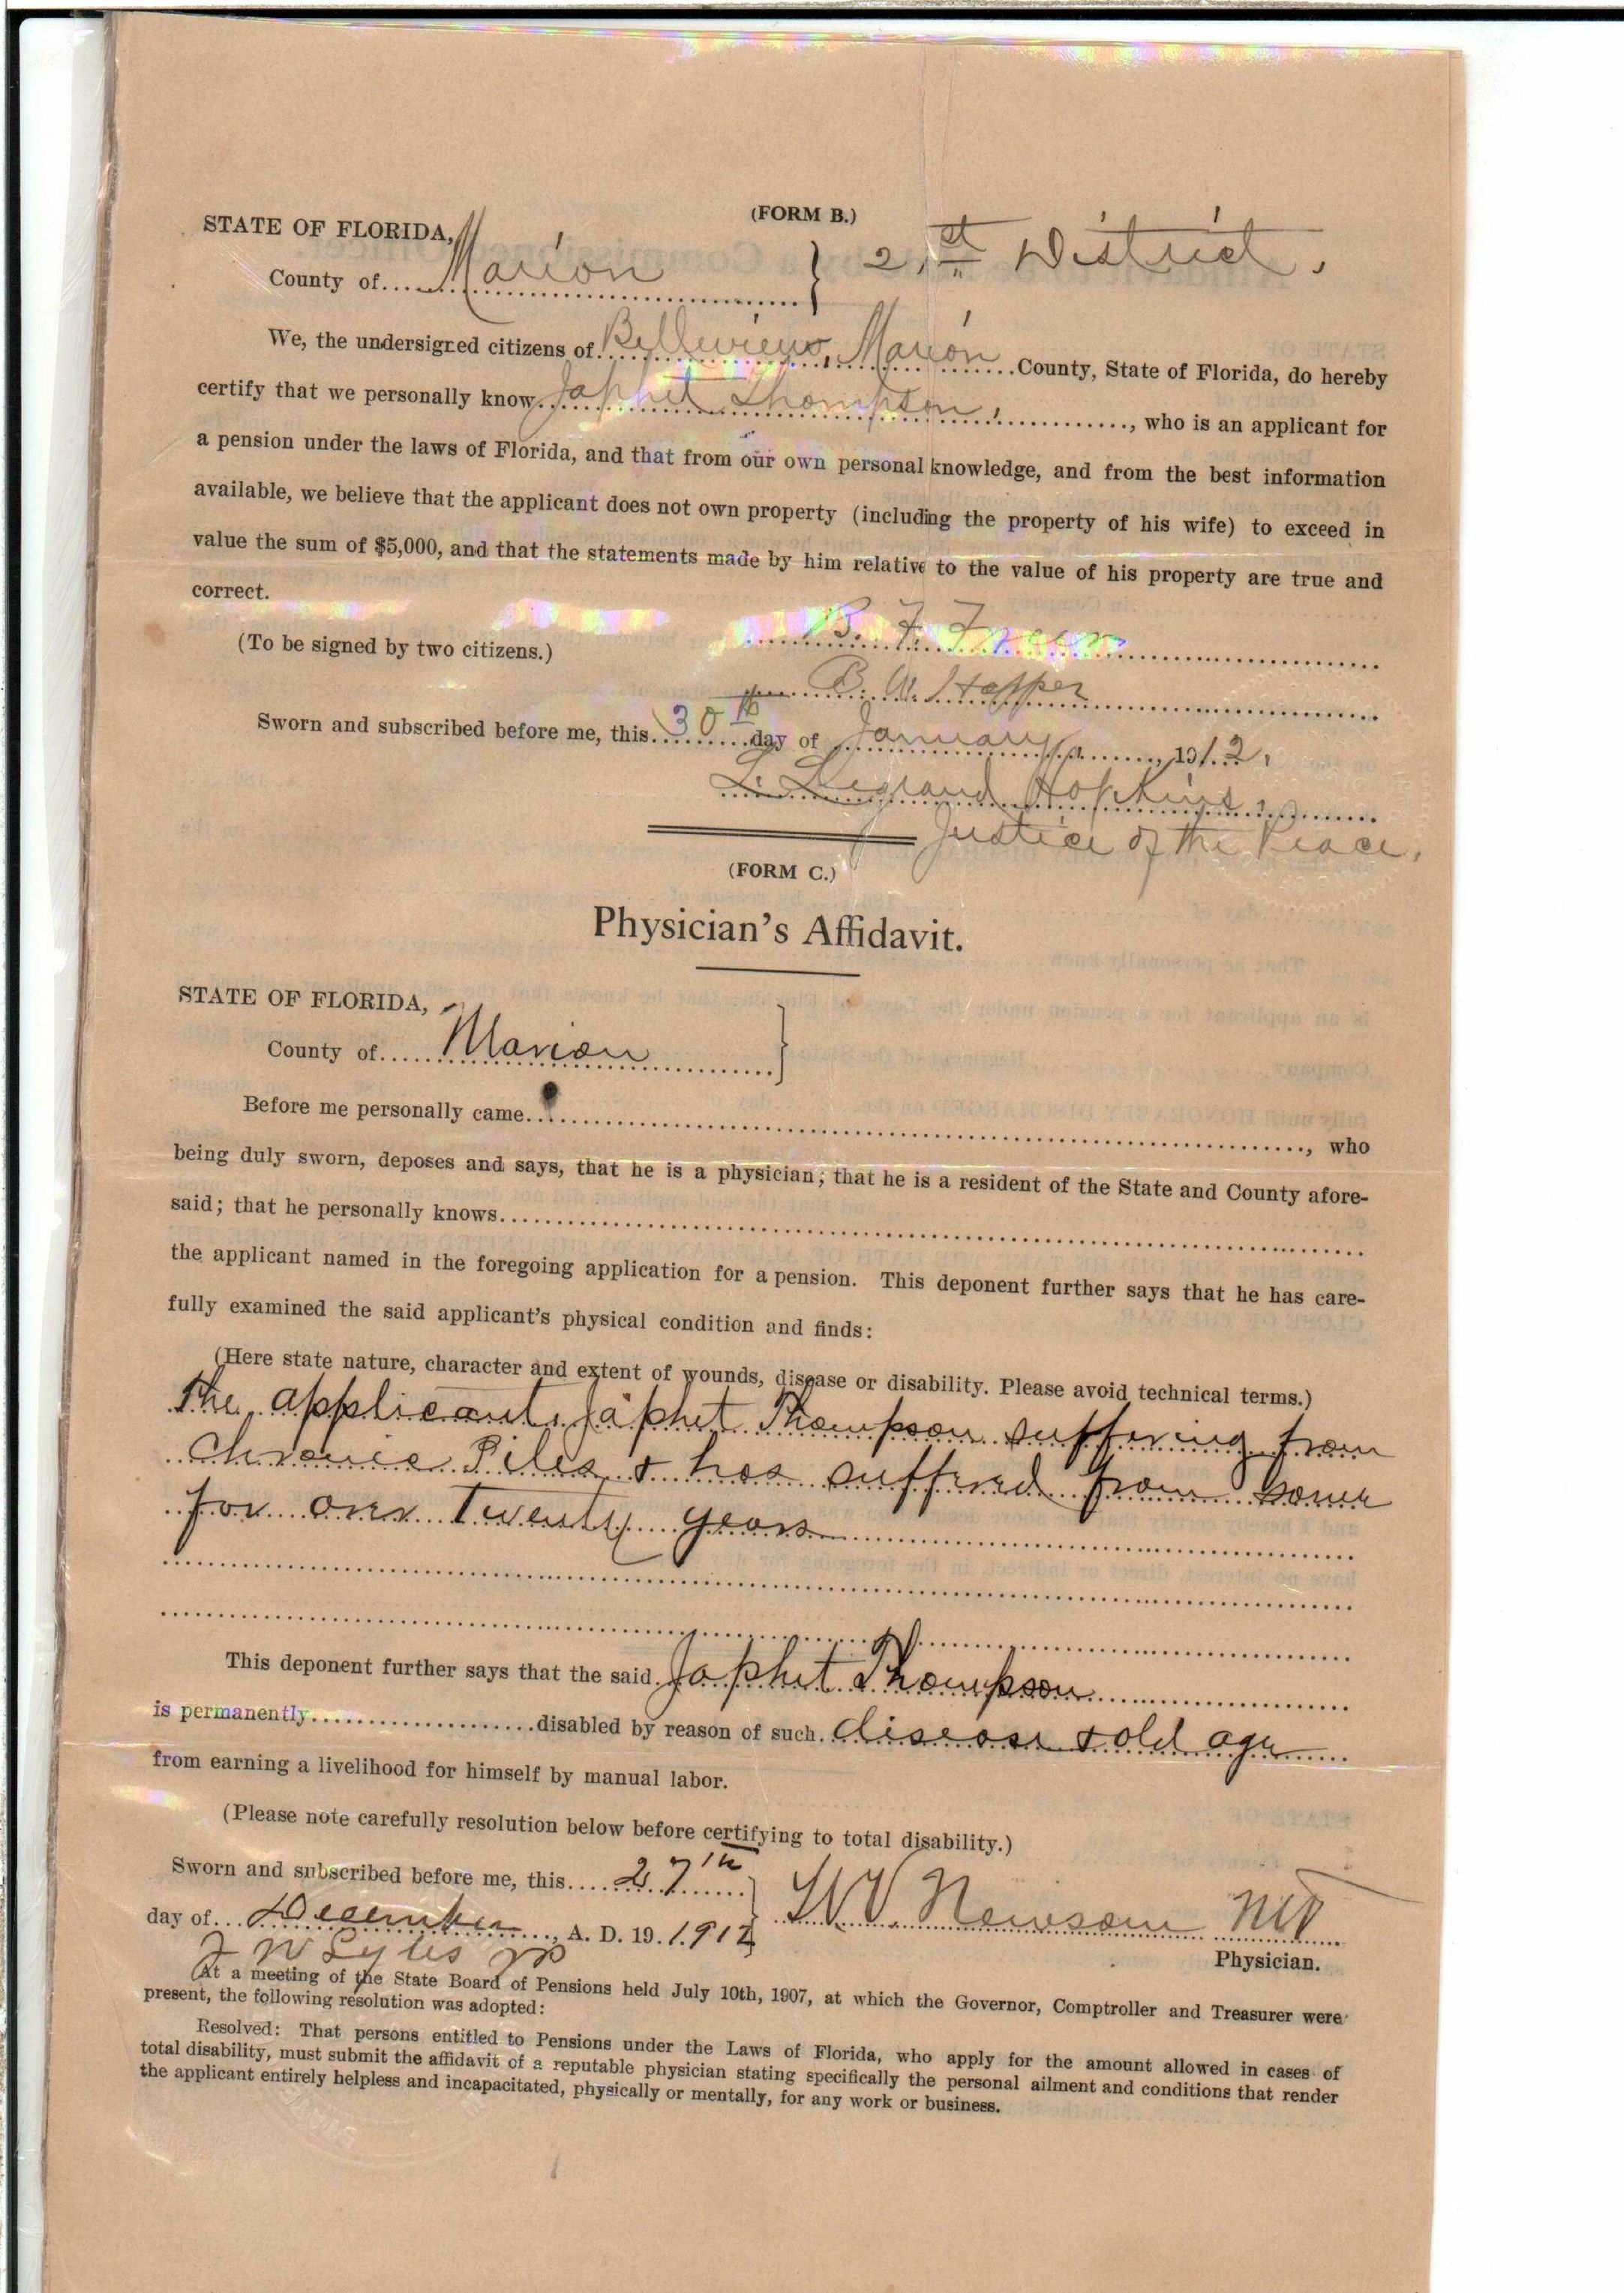 (FORM B.)
STATE OF FLORIDA,
County of Marion } 21st District.
We, the undersigned citizens of Belleview, Marion County, State of Florida, do hereby
certify that we personally know Japhet Thompson, who is an applicant for
a pension under the laws of Florida, and that from our own personal knowledge, and from the best information
available, we believe that the applicant does not own property (including the property of his wife) to exceed in
value the sum of $5,000, and that the statements made by him relative to the value of his property are true and
correct.
(To be signed by two citizens.) B. F. Freer
B. W. Hopper
Sworn and subscribed before me, this 30th day of January, 1912.
L. Legrand Hopkins,
Justice of the Peace.
(FORM C.)
Physician's Affidavit.
STATE OF FLORIDA,
County of Marion }
Before me personally came, who
being duly sworn, deposes and says, that he is a physician; that he is a resident of the State and County afore-
said; that he personally knows
the applicant named in the foregoing application for a pension. This deponent further says that he has care-
fully examined the said applicant's physical condition and finds:
(Here state nature, character and extent of wounds, disease or disability. Please avoid technical terms.)
The applicant, Japhet Thompson suffering from
Chronic Piles & has suffered from same
for over Twenty years
This deponent further says that the said Japhet Thompson
is permanently disabled by reason of such disease & old age
from earning a livelihood for himself by manual labor.
(Please note carefully resolution below before certifying to total disability.)
Sworn and subscribed before me, this 27th
day of December, A. D. 19 1912 } W V Newsom MD
J W Lyles JP
Physician.
At a meeting of the State Board of Pensions held July 10th, 1907, at which the Governor, Comptroller and Treasurer were
present, the following resolution was adopted:
Resolved: That persons entitled to Pensions under the Laws of Florida, who apply for the amount allowed in cases of
total disability, must submit the affidavit of a reputable physician stating specifically the personal ailment and conditions that render
the applicant entirely helpless and incapacitated, physically or mentally, for any work or business.